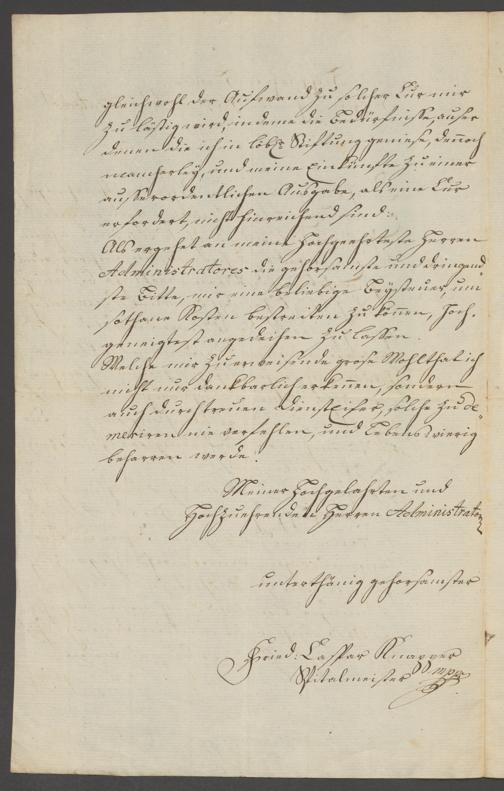 gleichwohl der Aufwand zu solcher Cur mir
zu lästig wird, indeme die Bedürfniße, auser
denen die ich in löbl. Stiftung geniese, dennoch
mancherley, und meine Einkünfte zu einer
ausserordentlichen Ausgabe, als eine Cur
erfordert, nicht hinreichend sind:
Als ergehet an meine Hochgeehrteste Herren
Administratores die gehorsamste und dringend
ste Bitte, mir eine beliebige Beysteuer, um
sothane Kosten bestreiten zu können, Hoch-
geneigtest angedeihen zu lassen.
Welche mir zu erweisende grose Wohlthat ich
nicht nur dankbarlich erkennen, sondern
auch durch treuen Diensteifer, solche zu de„
meriren nie verfehlen, und Lebenswierig
beharren werde.
Meiner Hochgelahrten und
Hochzuehrenden Herren Administrator
unterthänig gehorsamster
Fried: Caspar Knapper
Spitalmeister mpr